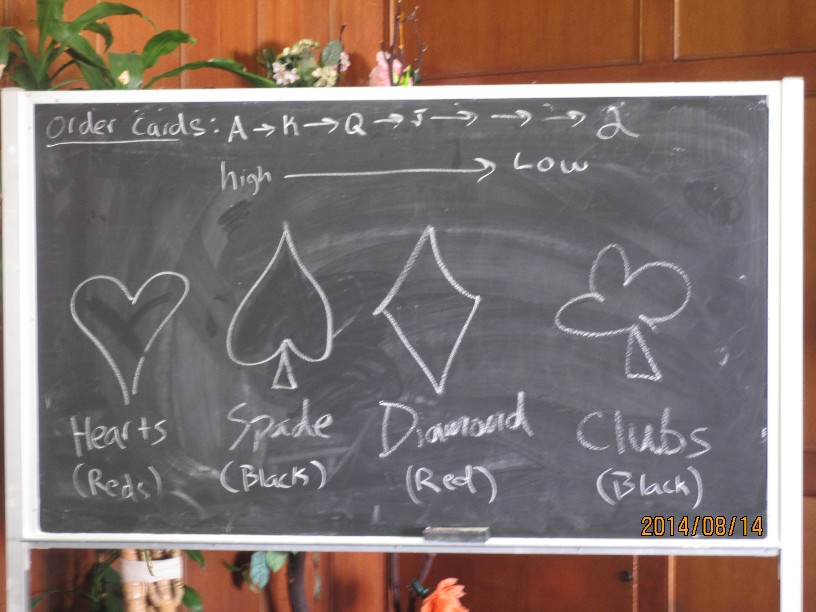 Order Cards: A → K → Q → J → → → 2
high → Low
Hearts Spade Diamond Clubs
(Reds) (Black) (Red) (Black)
2014/08/14